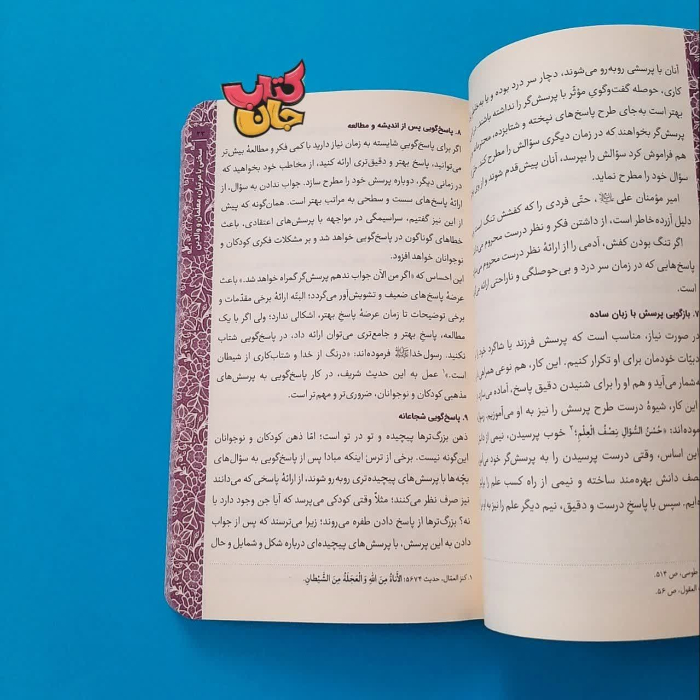 آنان با پرسشی روبه‌رو می‌شوند، دچار سر درد بوده و یا به
کاری، حوصله گفت‌وگوی مؤثّر با پرسش‌گر را نداشته باشند،
بهتر است به‌جای طرح پاسخ‌های نپخته و شتابزده،
پرسش‌گر بخواهند که در زمان دیگری سؤالش را مطرح کند
هم فراموش کرد سؤالش را بپرسد، آنان پیش‌قدم شوند و از وی
سؤال خود را مطرح نماید.
امیر مؤمنان علی، حتّی فردی را که کفشش تنگ است
دلیل آزرده‌خاطر است، از داشتن فکر و نظر درست محروم
اگر تنگ بودن کفش، آدمی را از ارائهٔ نظر درست محروم می‌
پاسخ‌هایی که در زمان سر درد و بی‌حوصلگی و ناراحتی ارائه
است.
۷. بازگویی پرسش با زبان ساده
در صورت نیاز، مناسب است که پرسش فرزند یا شاگرد خود
دبیّات خودمان برای او تکرار کنیم. این کار، هم نوعی
شمار می‌آید و هم او را برای شنیدن دقیق پاسخ، آماده می‌سازد
این کار، شیوهٔ درست طرح پرسش را نیز به او می‌آموزیم.
موده‌اند: «حُسنُ السُّؤالِ نِصفُ العِلمِ؛۲ خوب پرسیدن، نیمی از
این اساس، وقتی درست پرسیدن را به پرسش‌گر خود می‌
صف دانش بهره‌مند ساخته و نیمی از راه کسب علم را
ایم. سپس با پاسخ درست و دقیق، نیم دیگر علم را نیز به او
طوسی، ص ۵۱۴.
العقول، ص ۵۶.
کتاب
جان
۲۲
سخنی با مربّیان، معلّمان و والدین
۸. پاسخ‌گویی پس از اندیشه و مطالعه
اگر برای پاسخ‌گویی شایسته به زمان نیاز دارید با کمی فکر و مطالعهٔ بیش‌تر
می‌توانید، پاسخ بهتر و دقیق‌تری ارائه کنید، از مخاطب خود بخواهید که
در زمانی دیگر، دوباره پرسش خود را مطرح سازد. جواب ندادن به سؤال، از
ارائهٔ پاسخ‌های سست و سطحی به مراتب بهتر است. همان‌گونه که پیش
از این نیز گفتیم، سراسیمگی در مواجهه با پرسش‌های اعتقادی، باعث
خطاهای گوناگون در پاسخ‌گویی خواهد شد و بر مشکلات فکری کودکان و
نوجوانان خواهد افزود.
این احساس که «اگر من الآن جواب ندهم پرسش‌گر گمراه خواهد شد.» باعث
عرضهٔ پاسخ‌های ضعیف و تشویش‌آور می‌گردد؛ البتّه ارائهٔ برخی مقدّمات و
برخی توضیحات تا زمان عرضهٔ پاسخ بهتر، اشکالی ندارد؛ ولی اگر با یک
مطالعه، پاسخ بهتر و جامع‌تری می‌توان ارائه داد، در پاسخ‌گویی شتاب
نکنید. رسول خدا فرموده‌اند: «درنگ از خدا و شتاب‌کاری از شیطان
است.»۱ عمل به این حدیث شریف، در کار پاسخ‌گویی به پرسش‌های
مذهبی کودکان و نوجوانان، ضروری‌تر و مهم‌تر است.
۹. پاسخ‌گویی شجاعانه
ذهن بزرگ‌ترها پیچیده و تو در تو است؛ امّا ذهن کودکان و نوجوانان
این‌گونه نیست. برخی از ترس اینکه مبادا پس از پاسخ‌گویی به سؤال‌های
بچّه‌ها با پرسش‌های پیچیده‌تری روبه‌رو شوند، از ارائهٔ پاسخی که می‌دانند
نیز صرف نظر می‌کنند؛ مثلاً وقتی کودکی می‌پرسد که آیا جن وجود دارد یا
نه؟ بزرگ‌ترها از پاسخ دادن طفره می‌روند؛ زیرا می‌ترسند که پس از جواب
دادن به این پرسش، با پرسش‌های پیچیده‌ای درباره شکل و شمایل و حال
۱. کنز العمّال، حدیث ۵۶۷۴: الأناةُ مِنَ اللّهِ وَ العَجَلَةُ مِنَ الشَّیطانِ.